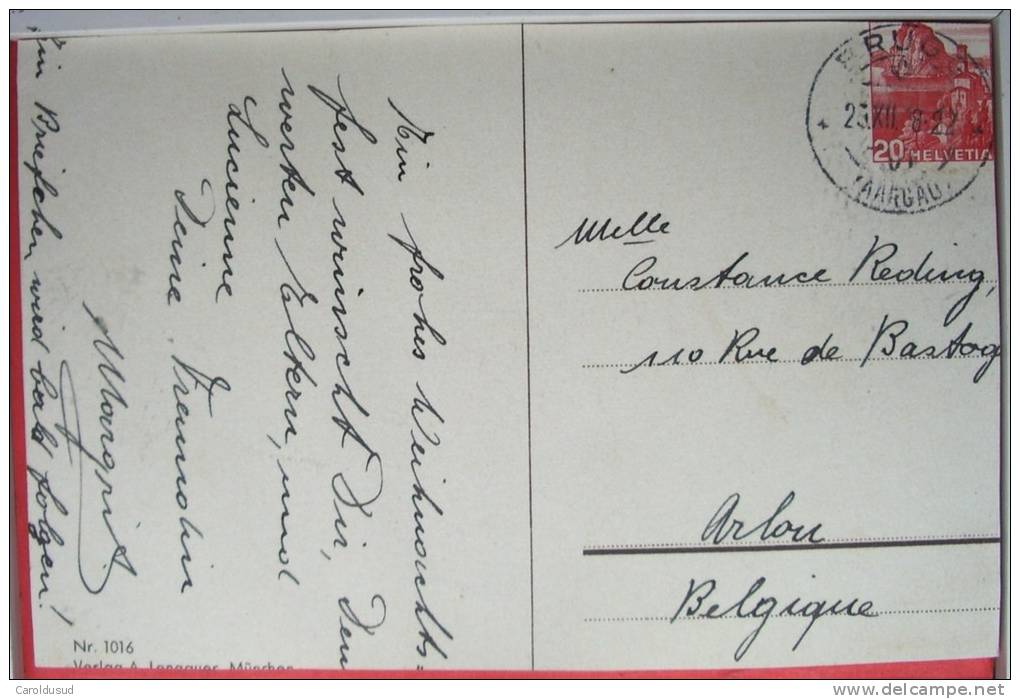 Ein frohes Weihnachts-
fest wünscht Dir, Den
werten Eltern, und
Lucienne
Deine Freundin
Margrit
Ein Briefchen wird bald folgen!
Nr. 1016
Verlag A. Lengauer, München
BRUGG
23.XII. 8-22
(AARGAU)
20 HELVETIA
Melle
Constance Reding,
110 Rue de Bastog
Arlon
Belgique
Caroldusud
www.delcampe.net